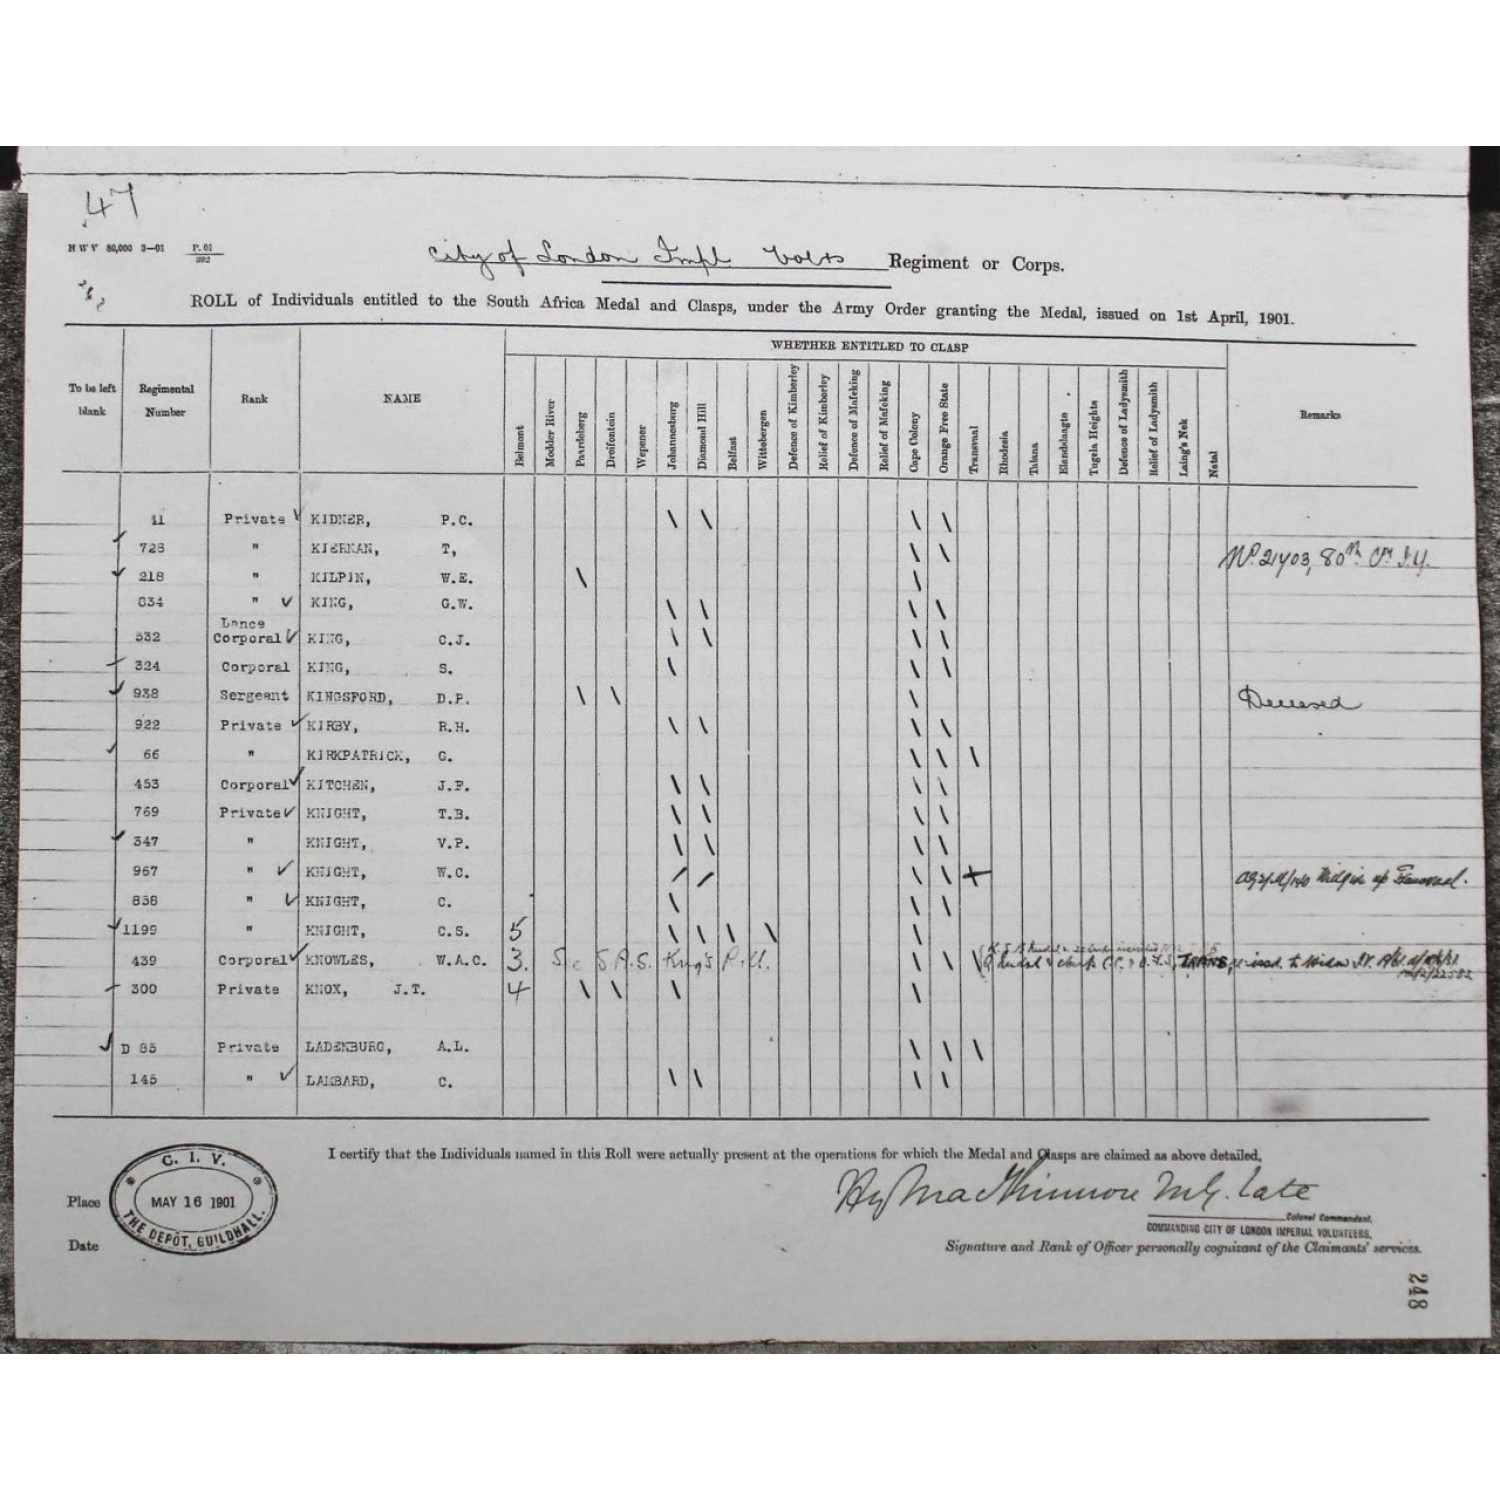 47
H W V 80,000 3—01 P. 01
392
City of London Impl Vols Regiment or Corps.
ROLL of Individuals entitled to the South Africa Medal and Clasps, under the Army Order granting the Medal, issued on 1st April, 1901.
WHETHER ENTITLED TO CLASP
To be left blank Regimental Number Rank NAME Belmont Modder River Paardeberg Dreifontein Wepener Johannesburg Diamond Hill Belfast Wittebergen Defence of Kimberley Relief of Kimberley Defence of Mafeking Relief of Mafeking Cape Colony Orange Free State Transvaal Rhodesia Talana Elandslaagte Tugela Heights Defence of Ladysmith Relief of Ladysmith Laing's Nek Natal Remarks
41 Private ✓ KIDNER, P.C. \ \ \ \
✓ 728 " KIERNAN, T, \ \ No. 21403, 80th Cy I.Y.
✓ 218 " KILPIN, W.E. \ \
634 " ✓ KING, G.W. \ \ \ \
Lance
532 Corporal ✓ KING, C.J. \ \ \ \
324 Corporal KING, S. \ \ \
✓ 938 Sergeant KINGSFORD, D.P. \ \ \ Deceased
922 Private ✓ KIRBY, R.H. \ \ \ \
✓ 66 " KIRKPATRICK, G. \ \ \
453 Corporal ✓ KITCHEN, J.P. \ \ \ \
769 Private ✓ KNIGHT, T.B. \ \ \ \
✓ 347 " KNIGHT, V.P. \ \ \ \
967 " ✓ KNIGHT, W.C. / / \ \ +
838 " ✓ KNIGHT, C. \ \ \
✓ 1199 " KNIGHT, C.S. 5 \ \ \ \ \
439 Corporal ✓ KNOWLES, W.A.C. 3. S.A.S. King's \ \ \ TRANS, to Widow
300 Private KNOX, J.T. 4 \ \ \ \
✓ D 85 Private LADENBURG, A.L. \ \ \
145 " ✓ LAMBARD, C. \ \ \ \
I certify that the Individuals named in this Roll were actually present at the operations for which the Medal and Clasps are claimed as above detailed,
C. I. V.
MAY 16 1901
THE DEPÔT, GUILDHALL.
Place
Date
Hy MacKinnon M.G. late
Colonel Commandant,
COMMANDING CITY OF LONDON IMPERIAL VOLUNTEERS.
Signature and Rank of Officer personally cognizant of the Claimants' services.
248